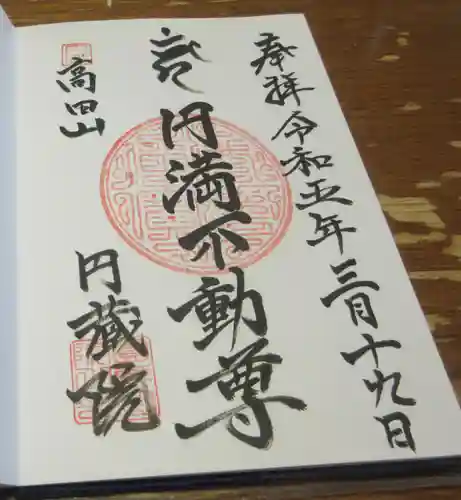 奉拝 令和五年 三月十九日
円満不動尊
高田山
円蔵院